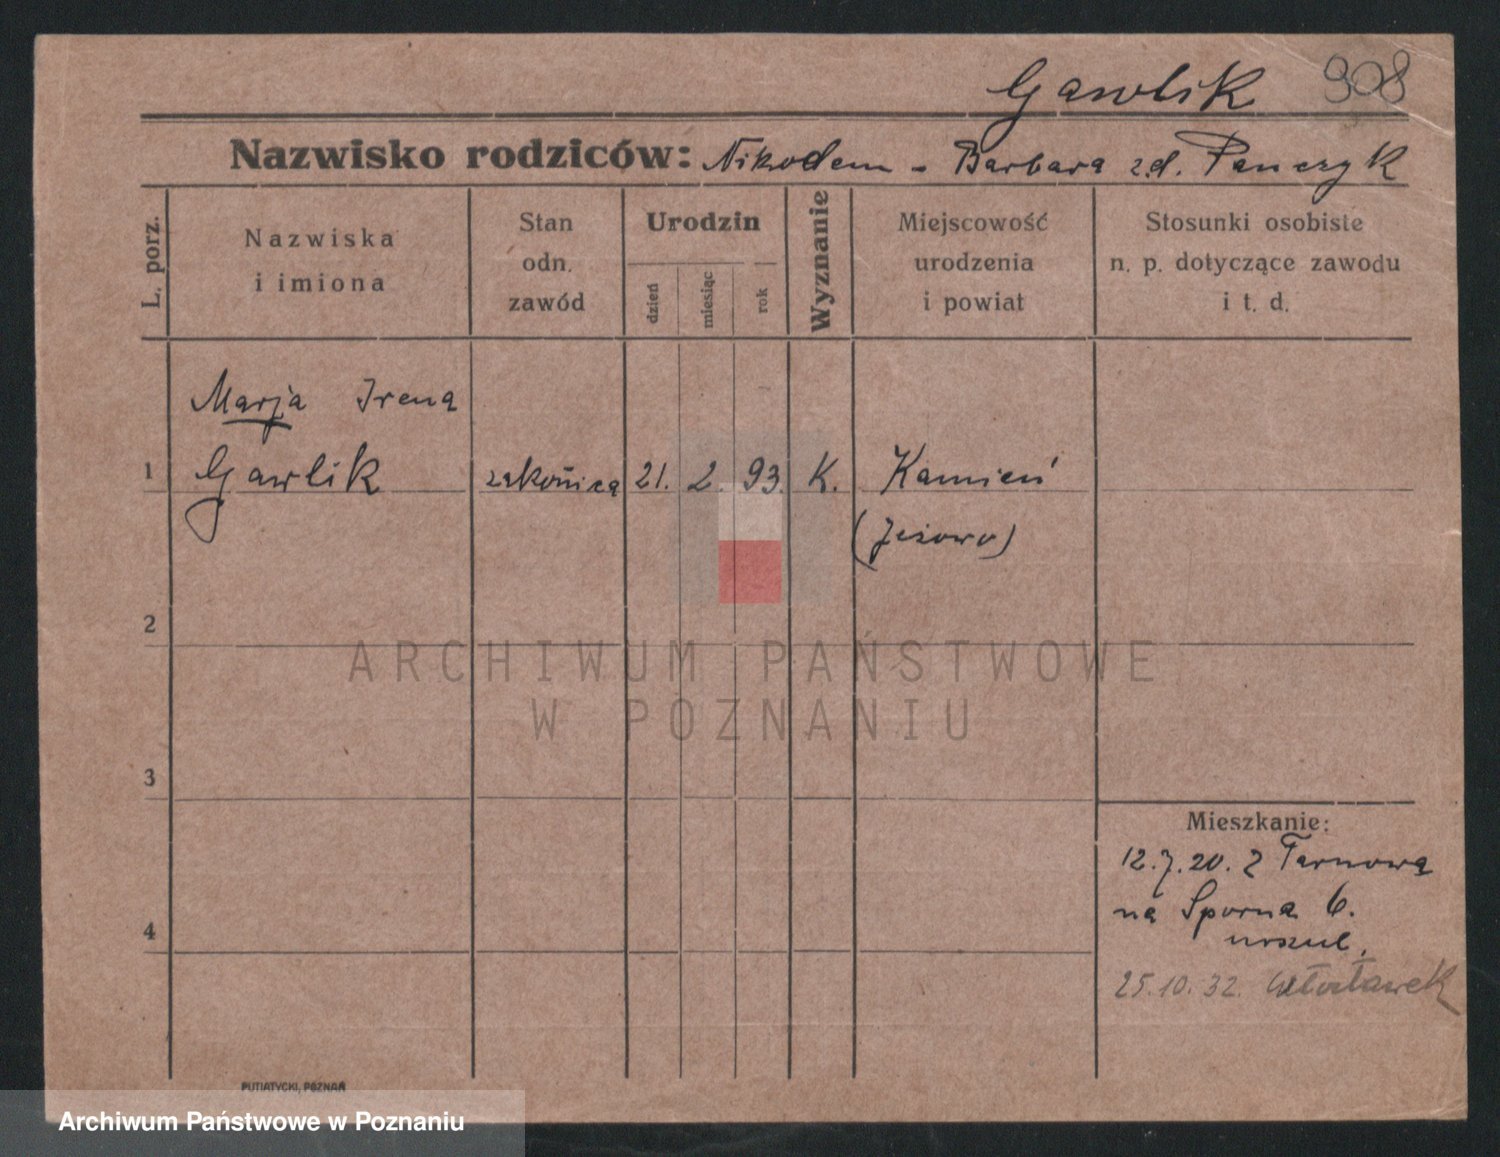 Gawlik 908
Nazwisko rodziców: Nikodem - Barbara zd. Panczyk
L. porz.
Nazwiska
i imiona
Stan
odn.
zawód
Urodzin
dzień
miesiąc
rok
Wyznanie
Miejscowość
urodzenia
i powiat
Stosunki osobiste
n. p. dotyczące zawodu
i t. d.
Marja Irena
1 Gawlik zakonica 21. 2. 93. K. Kamień
(Jeżowo)
2
ARCHIWUM PAŃSTWOWE
W POZNANIU
3
Mieszkanie:
12.7.20. z Tarnowa
na Sporna 6.
4
urszul.
25.10.32. Włocławek
PUTIATYCKI, POZNAŃ
Archiwum Państwowe w Poznaniu